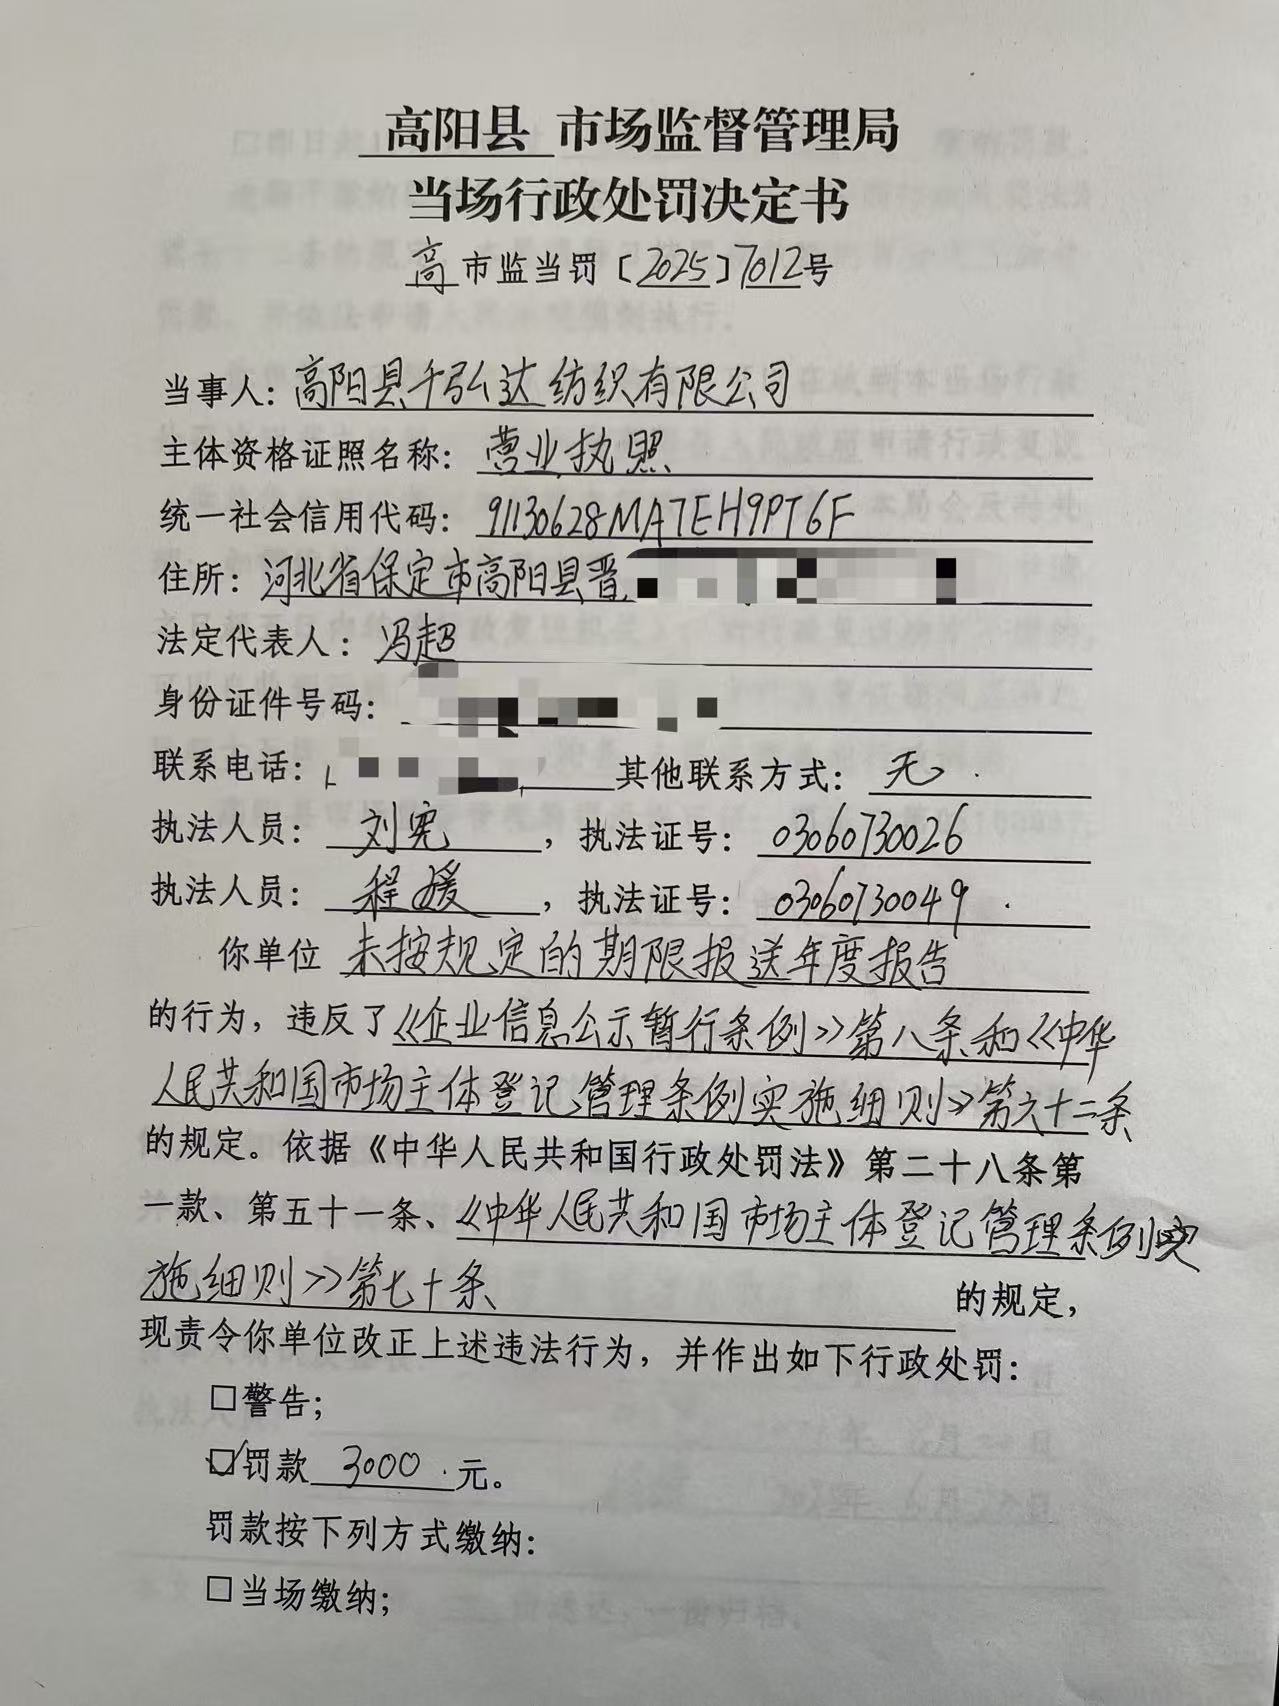 高阳县 市场监督管理局
当场行政处罚决定书
高市监当罚〔2025〕7012号
当事人：高阳县千弘达纺织有限公司
主体资格证照名称：营业执照
统一社会信用代码：91130628MA7EH9PT6F
住所：河北省保定市高阳县晋
法定代表人：冯超
身份证件号码：
联系电话： 其他联系方式：无.
执法人员：刘宪，执法证号：03060730026
执法人员：程媛，执法证号：03060730049.
你单位 未按规定的期限报送年度报告
的行为，违反了《企业信息公示暂行条例》第八条和《中华
人民共和国市场主体登记管理条例实施细则》第六十二条
的规定。依据《中华人民共和国行政处罚法》第二十八条第
一款、第五十一条、《中华人民共和国市场主体登记管理条例实
施细则》第七十条 的规定，
现责令你单位改正上述违法行为，并作出如下行政处罚：
□警告；
☑罚款 3000.元。
罚款按下列方式缴纳：
□当场缴纳；